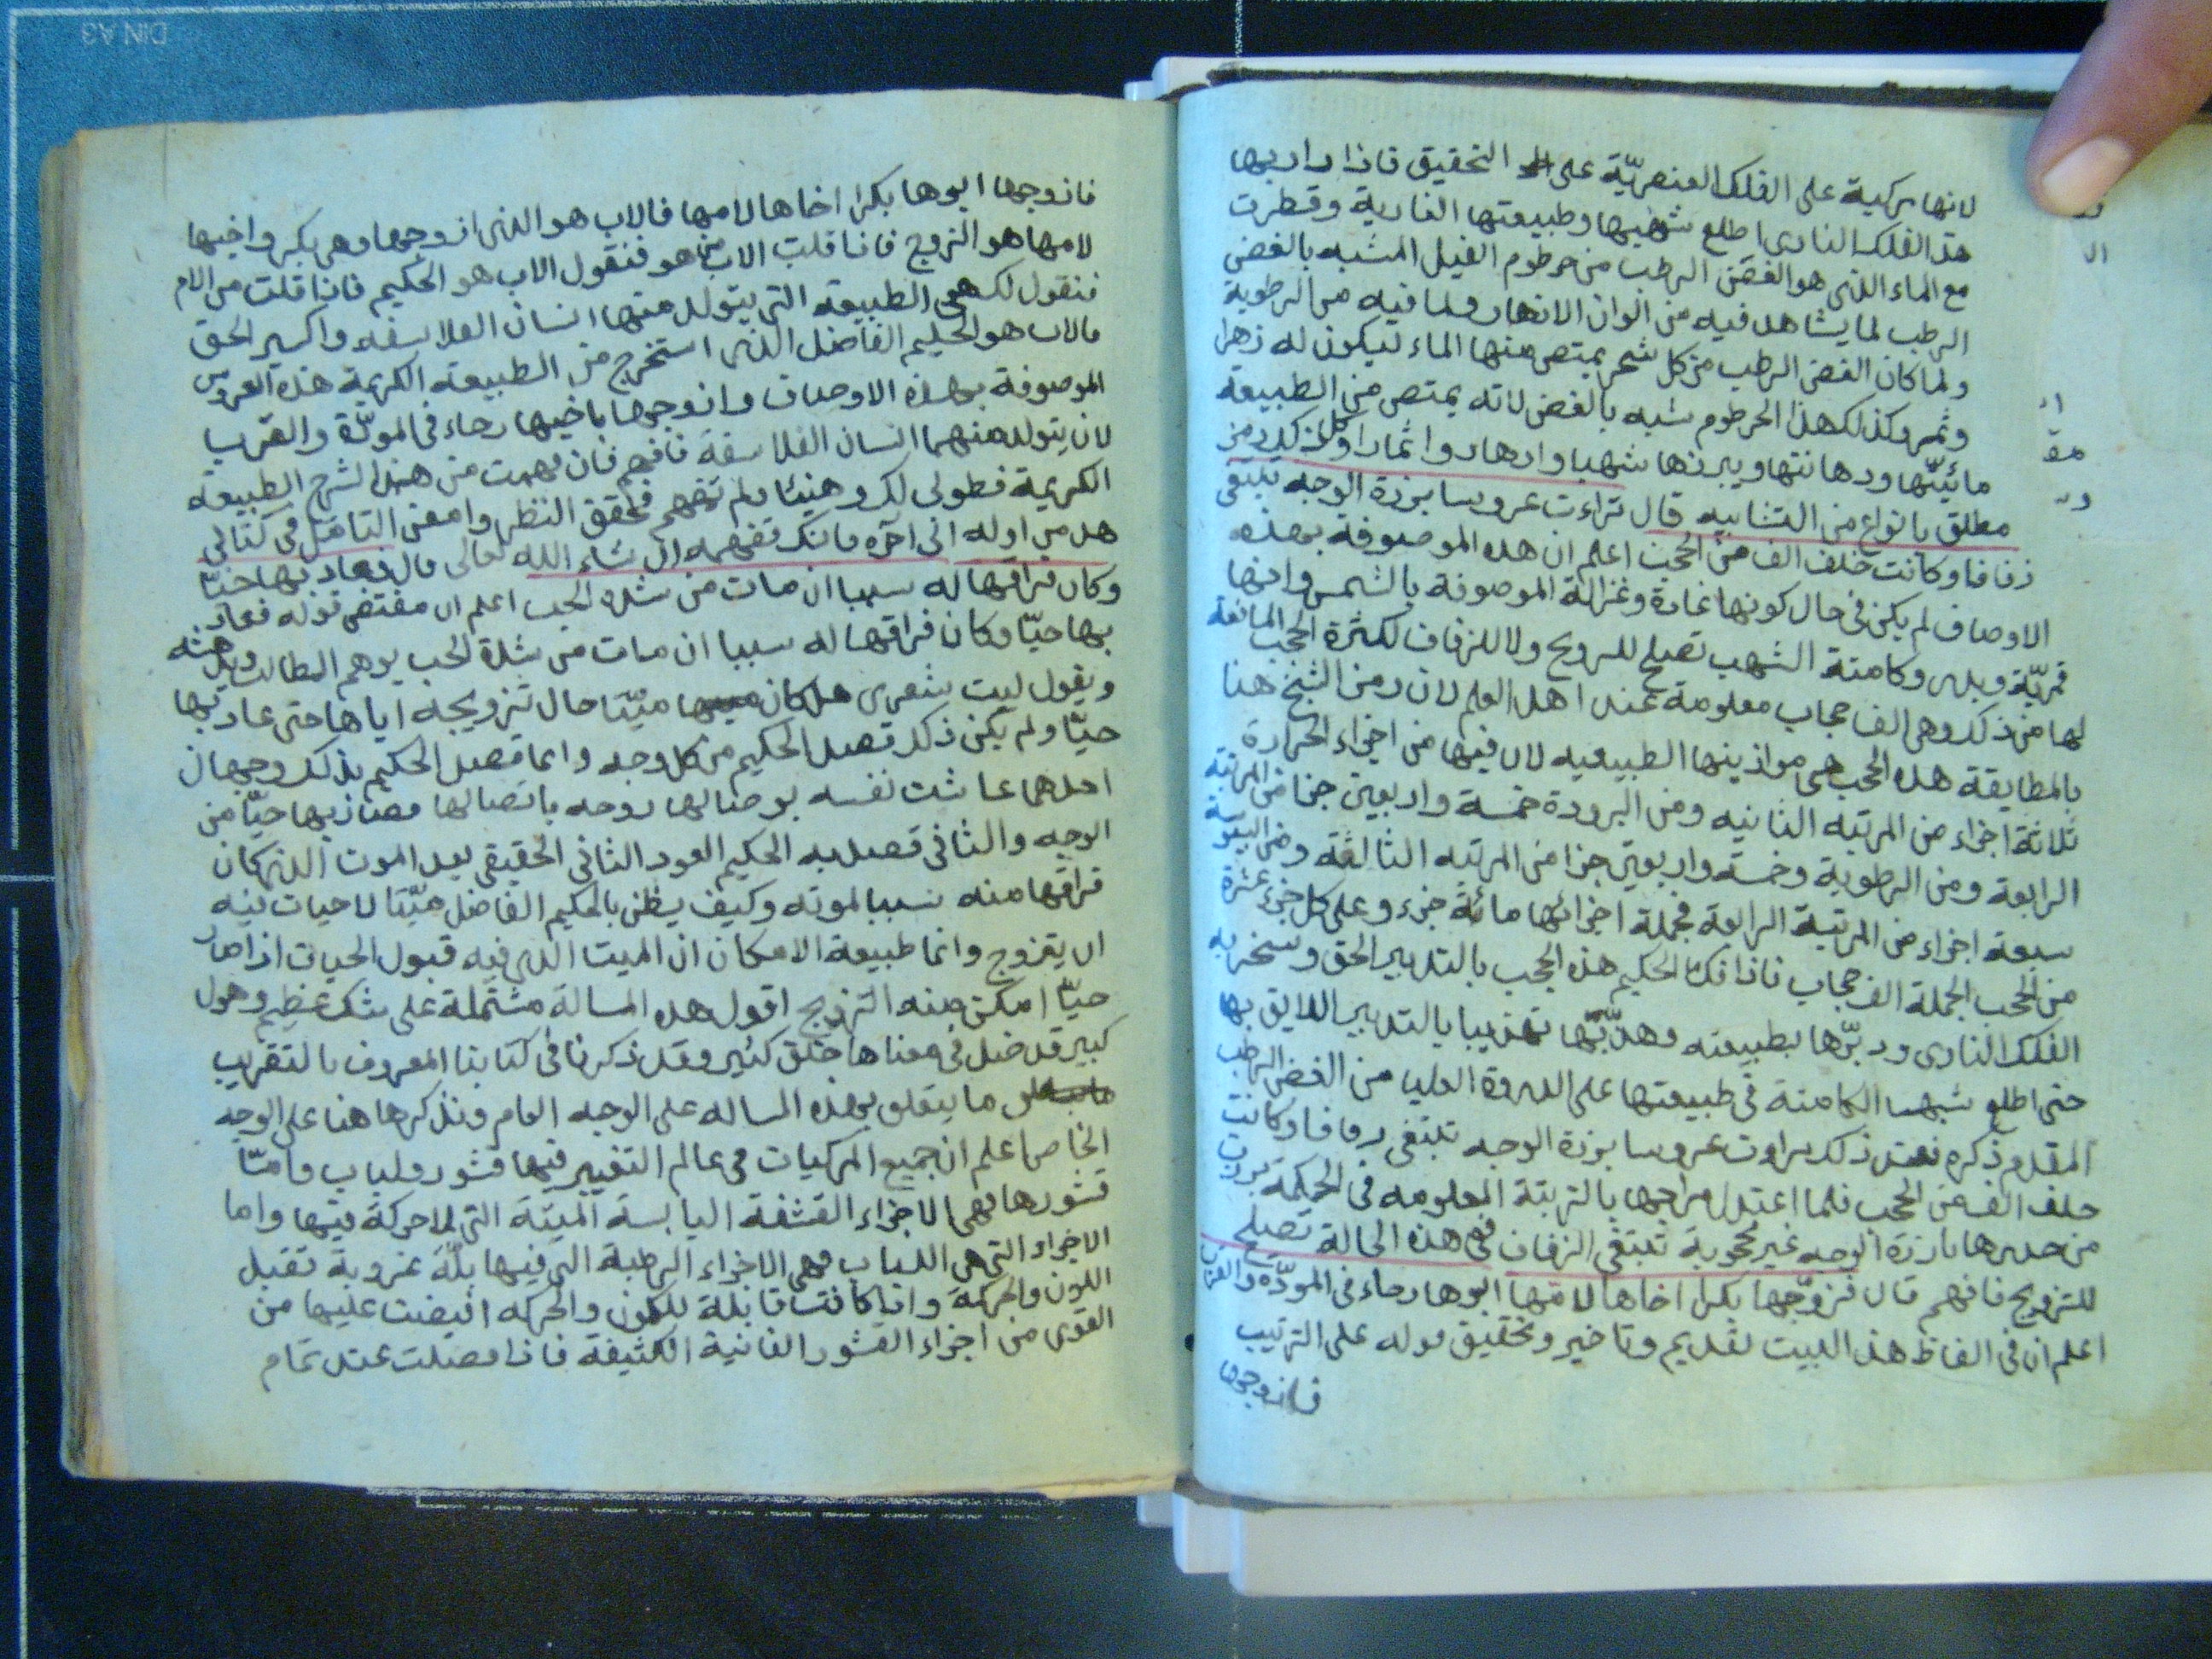 لانها مركبة على الفلك العنصريّة على التحقيق فاذا دار بها
هذا الفلك النارى اطلع شهبها وطبيعتها النارية وقطرت
مع الماء الذى هو الغصن الرطب من خرطوم الفيل المشبه بالغصن
الرطب لما يشاهد فيه من الوان الازهار ولما فيه من الرطوبة
ولما كان الغصن الرطب من كل شجر يمتص منها الماء ليكون له زهرا
وثمر وكذلك هذا الخرطوم شبه بالغصن لانه يمتص من الطبيعة
مائيّتها ودهانتها ويبرزها شهبا وازهار واثمارا وكل ذلك رمز
مطلق بانواع من التشابيه قال تراءت عروسا برزة الوجه تبتغى
زفافا وكانت خلف الف من الحجب اعلم ان هذه الموصوفة بهذه
الاوصاف لم يكن فى حال كونها غادة وغزالة الموصوفة بالشمس وانها
قمريّة وبدر وكامنة الشهب تصلح للترويج ولا للزفاف لكثرة الحجب المانعة
لها من ذلك وهى الف حجاب معلومة عند اهل العلم لان رمز الشيخ هنا
بالمطابقة هذه الحجب هى موازينها الطبيعيه لان فيها من اجزاء الحرارة
ثلاثة اجزاء من المرتبه الثانيه ومن البرودة خمسة واربعين جزا من المرتبة
الرابعة ومن الرطوبة وخمسة واربعين جزا من المرتبه الثالثة ومن اليبوسة
سبعة اجزاء من المرتبة الرابعة فجملة اجزائها مائة جزء وعلى كل جزء عشرة
من الحجب الجملة الف حجاب فاذا فك الحكيم هذه الحجب بالتدبير الحق وسخر به
الفلك النارى ودبّرها بطبيعته وهذّبها تهذيبا بالتدبير اللايق بها
حتى اطلع شبهها الكامنة فى طبيعتها على الذروة العليا من الغصن الرطب
المقدم ذكره فعند ذلك تراءت عروسا برزة الوجه تبتغى زفافا وكانت
خلف الف من الحجب فلما اعتدل مزاجها بالتربية المعلومه فى الحكمة برزت
من خدرها بارزة الوجه غير محجوبة تبتغى الزفاف فهى هذه الحالة تصلح
للتزويج فافهم قال فزوّجها بكرا اخاها لامّها ابوها رجاء فى المودّة والقرب
اعلم ان فى الفاظ هذا البيت تقديم وتاخير وتحقيق قوله على الترتيب
فازوجها
فازوجها ابوها بكرا اخاها لامها فالاب هو الذى ازوجها وهى بكر واخيها
لامها هو الزوج فاذا قلت الاب من هو فنقول الاب هو الحكيم فاذا قلت من الام
فنقول لك هى الطبيعة التى يتولد منها انسان الفلاسفه واكسير الحق
فالاب هو الحكيم الفاضل الذى استخرج من الطبيعة الكريمة هذه العروس
الموصوفة بهذه الاوصاف وازوجها باخيها رجاء فى المودّة والقرب
لان يتولد منهما انسان الفلاسفة فافهم فان فهمت من هذا الشرح الطبيعة
الكريمة فطوبى لك وهنيئا ولم تفهم فحقق النظر وامعن التامل فى كتابى
هذا من اوله الى آخره فانك تفهمه ان شاء الله تعالى قال فعاد بها حيّا
وكان فراقها له سببا ان مات من شدة الحب اعلم ان مقتضى قوله فعاد
بها حيّا وكان فراقها له سببا ان مات من شدة الحب يوهم الطالب
ويقول ليت شعرى هل كان ميّتا حال تزويجه اياها حتى عاد بها
حيّا ولم يكن ذلك قصد الحكيم من كل وجه وانما قصد الحكيم بذلك وجهان
احدهما عاشت نفسه بوصالها روحه باتصالها فصار بها حيّا من
الوجه والثانى قصد به الحكيم العود الثانى الحقيقى بعد الموت الذى كان
فراقها منه سببا لموته وكيف يظن بالحكيم الفاضل ميّتا لا حيات فيه
ان يتزوج وانما طبيعة الامكان ان الميت الذى فيه قبول الحيات اذا صار
حيّا امكن منه التزويج اقول هذه المسالة مشتملة على شك عظيم وهول
كبير قد ضل فى معناها خلق كثير وقد ذكرنا فى كتابنا المعروف بالتقريب
ما يتعلق بهذه المساله على الوجه العام ونذكرها هنا على الوجه
الخاص اعلم ان جميع المركبات فى عالم التغيير فيها قشور ولباب فامّا
قشورها فهى الاجزاء القشفة اليابسة الميتة التى لا حركة فيها واما
الاجزاء التى هى اللباب فهى الاجزاء الرطبة التى فيها بلّة غروية تقبل
اللون والحركة واذا كانت قابلة للكون والحركه افيضت عليها من
القوى من اجزاء القشور الفانية الكثيفة فاذا فصلت عند تمام